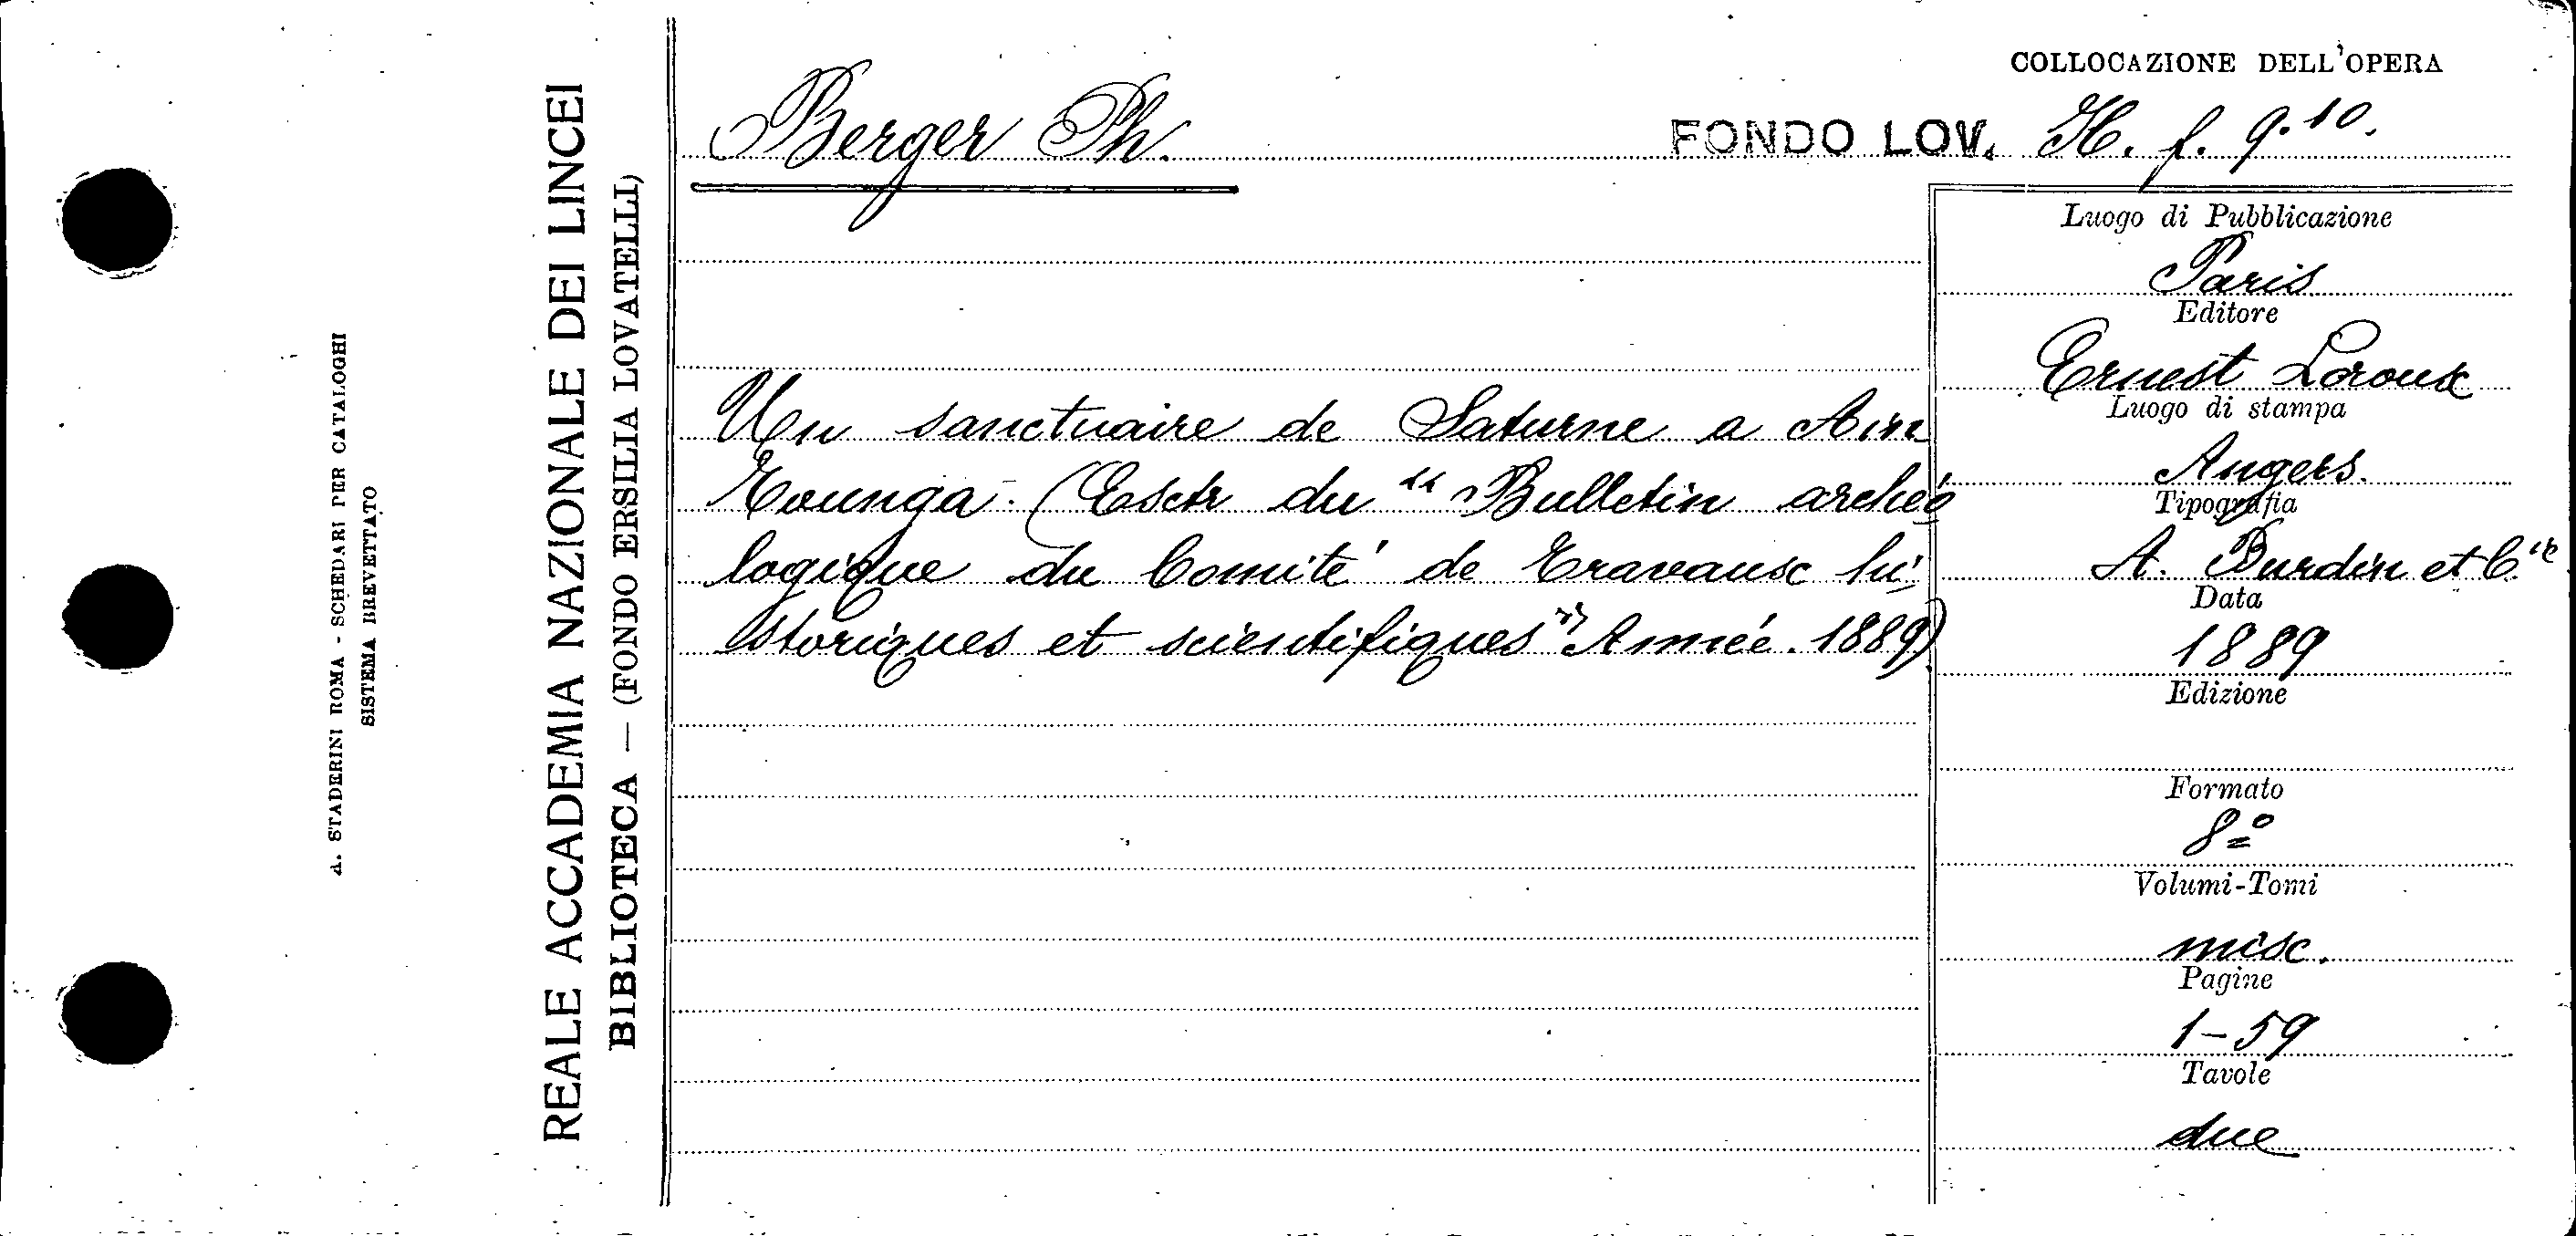 A. STADERINI ROMA - SCHEDARI PER CATALOGHI
SISTEMA BREVETTATO
REALE ACCADEMIA NAZIONALE DEI LINCEI
BIBLIOTECA — (FONDO ERSILIA LOVATELLI)
COLLOCAZIONE DELL'OPERA
Berger Ph. FONDO LOV. H. f. 9.10.
Un sanctuaire de Saturne a Ain
Tounga. (Esctr du “Bulletin archéo
logique du Comité de Travausc hi
storiques et scientifiques” Année. 1889)
Luogo di Pubblicazione
Paris
Editore
Ernest Leroux
Luogo di stampa
Angers.
Tipografia
A. Burdin et C.ie
Data
1889
Edizione
Formato
8º
Volumi-Tomi
misc.
Pagine
1-59
Tavole
due